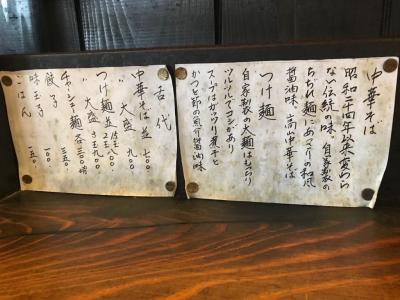 中華そば
昭和二十四年以来変わら
ない伝統の味、自家製の
ちぢれ麺にあっさりの和風
醤油味、高山中華そば
つけ麺
自家製の太麺はもっちり
ツルツルでコシがあり
スープはガッツリ煮干と
かつお節の魚介醤油味
古代
中華そば 並 七〇〇
〃 大盛 九〇〇
つけ麺 並 八〇〇
〃 大盛 九〇〇
チャーシュー麺 各三〇〇増
餃子 三五〇
味玉子 一〇〇
ごはん 一五〇